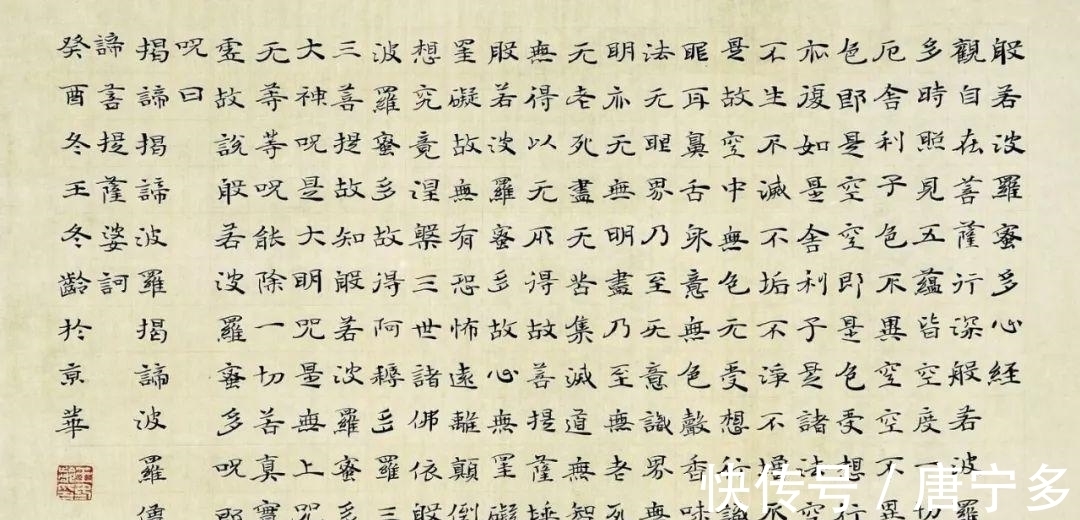 般若波羅蜜多心経
觀自在菩薩行深般若波羅
多時照見五蘊皆空度一切
厄舍利子色不異空空不異
色即是空空即是色受想行
亦復如是舍利子是諸法空
不生不滅不垢不淨不增不
是故空中無色无受想行識
眼耳鼻舌身意無色聲香味
法无眼界乃至无意識界
明亦无無明盡乃至無老
无老死盡无苦集滅道無智
無得以无所得故菩提薩埵
般若波羅蜜多故心無罣礙
罣礙故無有恐怖遠離顛倒
想究竟涅槃三世諸佛依般
波羅蜜多故得阿耨多羅三
三菩提故知般若波羅蜜多
大神呪是大明咒是無上
无等等呪能除一切苦真實
虛故說般若波羅蜜多呪即
呪曰
揭諦揭諦波羅揭諦波羅僧
諦菩提薩婆訶
癸酉冬王冬齡於京華
快传号 / 唐宁多